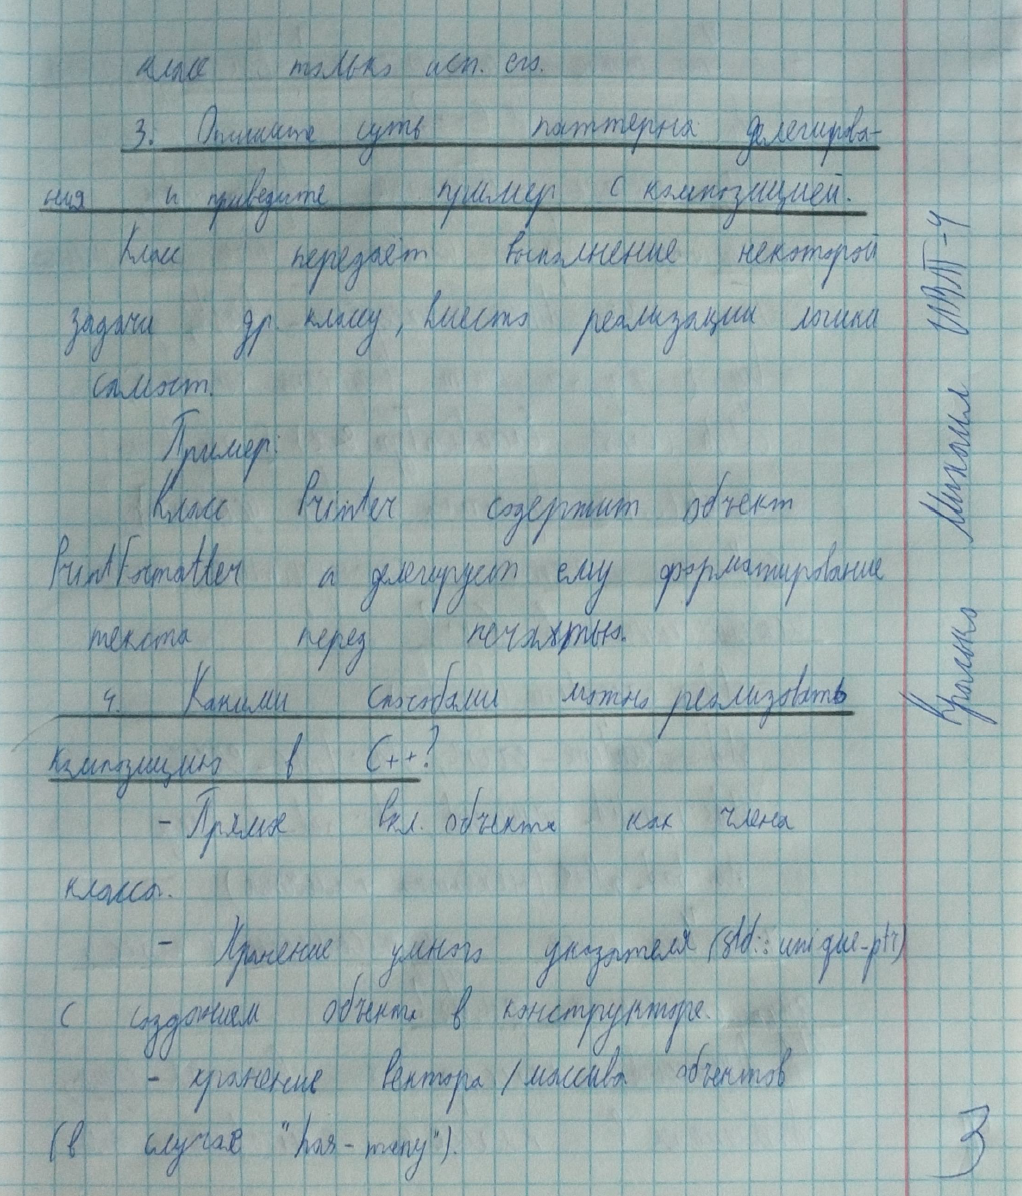 класс только исп. его.
3. Опишите суть паттерна делегирова-
ния и приведите пример с композицией.
Класс передаёт выполнение некоторой
задачи др. классу, вместо реализации логики
самост.
Пример:
Класс Printer содержит объект
PrintFormatter и делегирует ему форматирование
текста перед печатью.
4. Какими способами можно реализовать
композицию в C++?
- Прямое вкл. объекта как члена
класса.
- Хранение умного указателя (std::unique-ptr)
с созданием объекта в конструкторе.
- хранение вектора / массива объектов
(в случае "has-many").
Михаил ИВТ-4
3